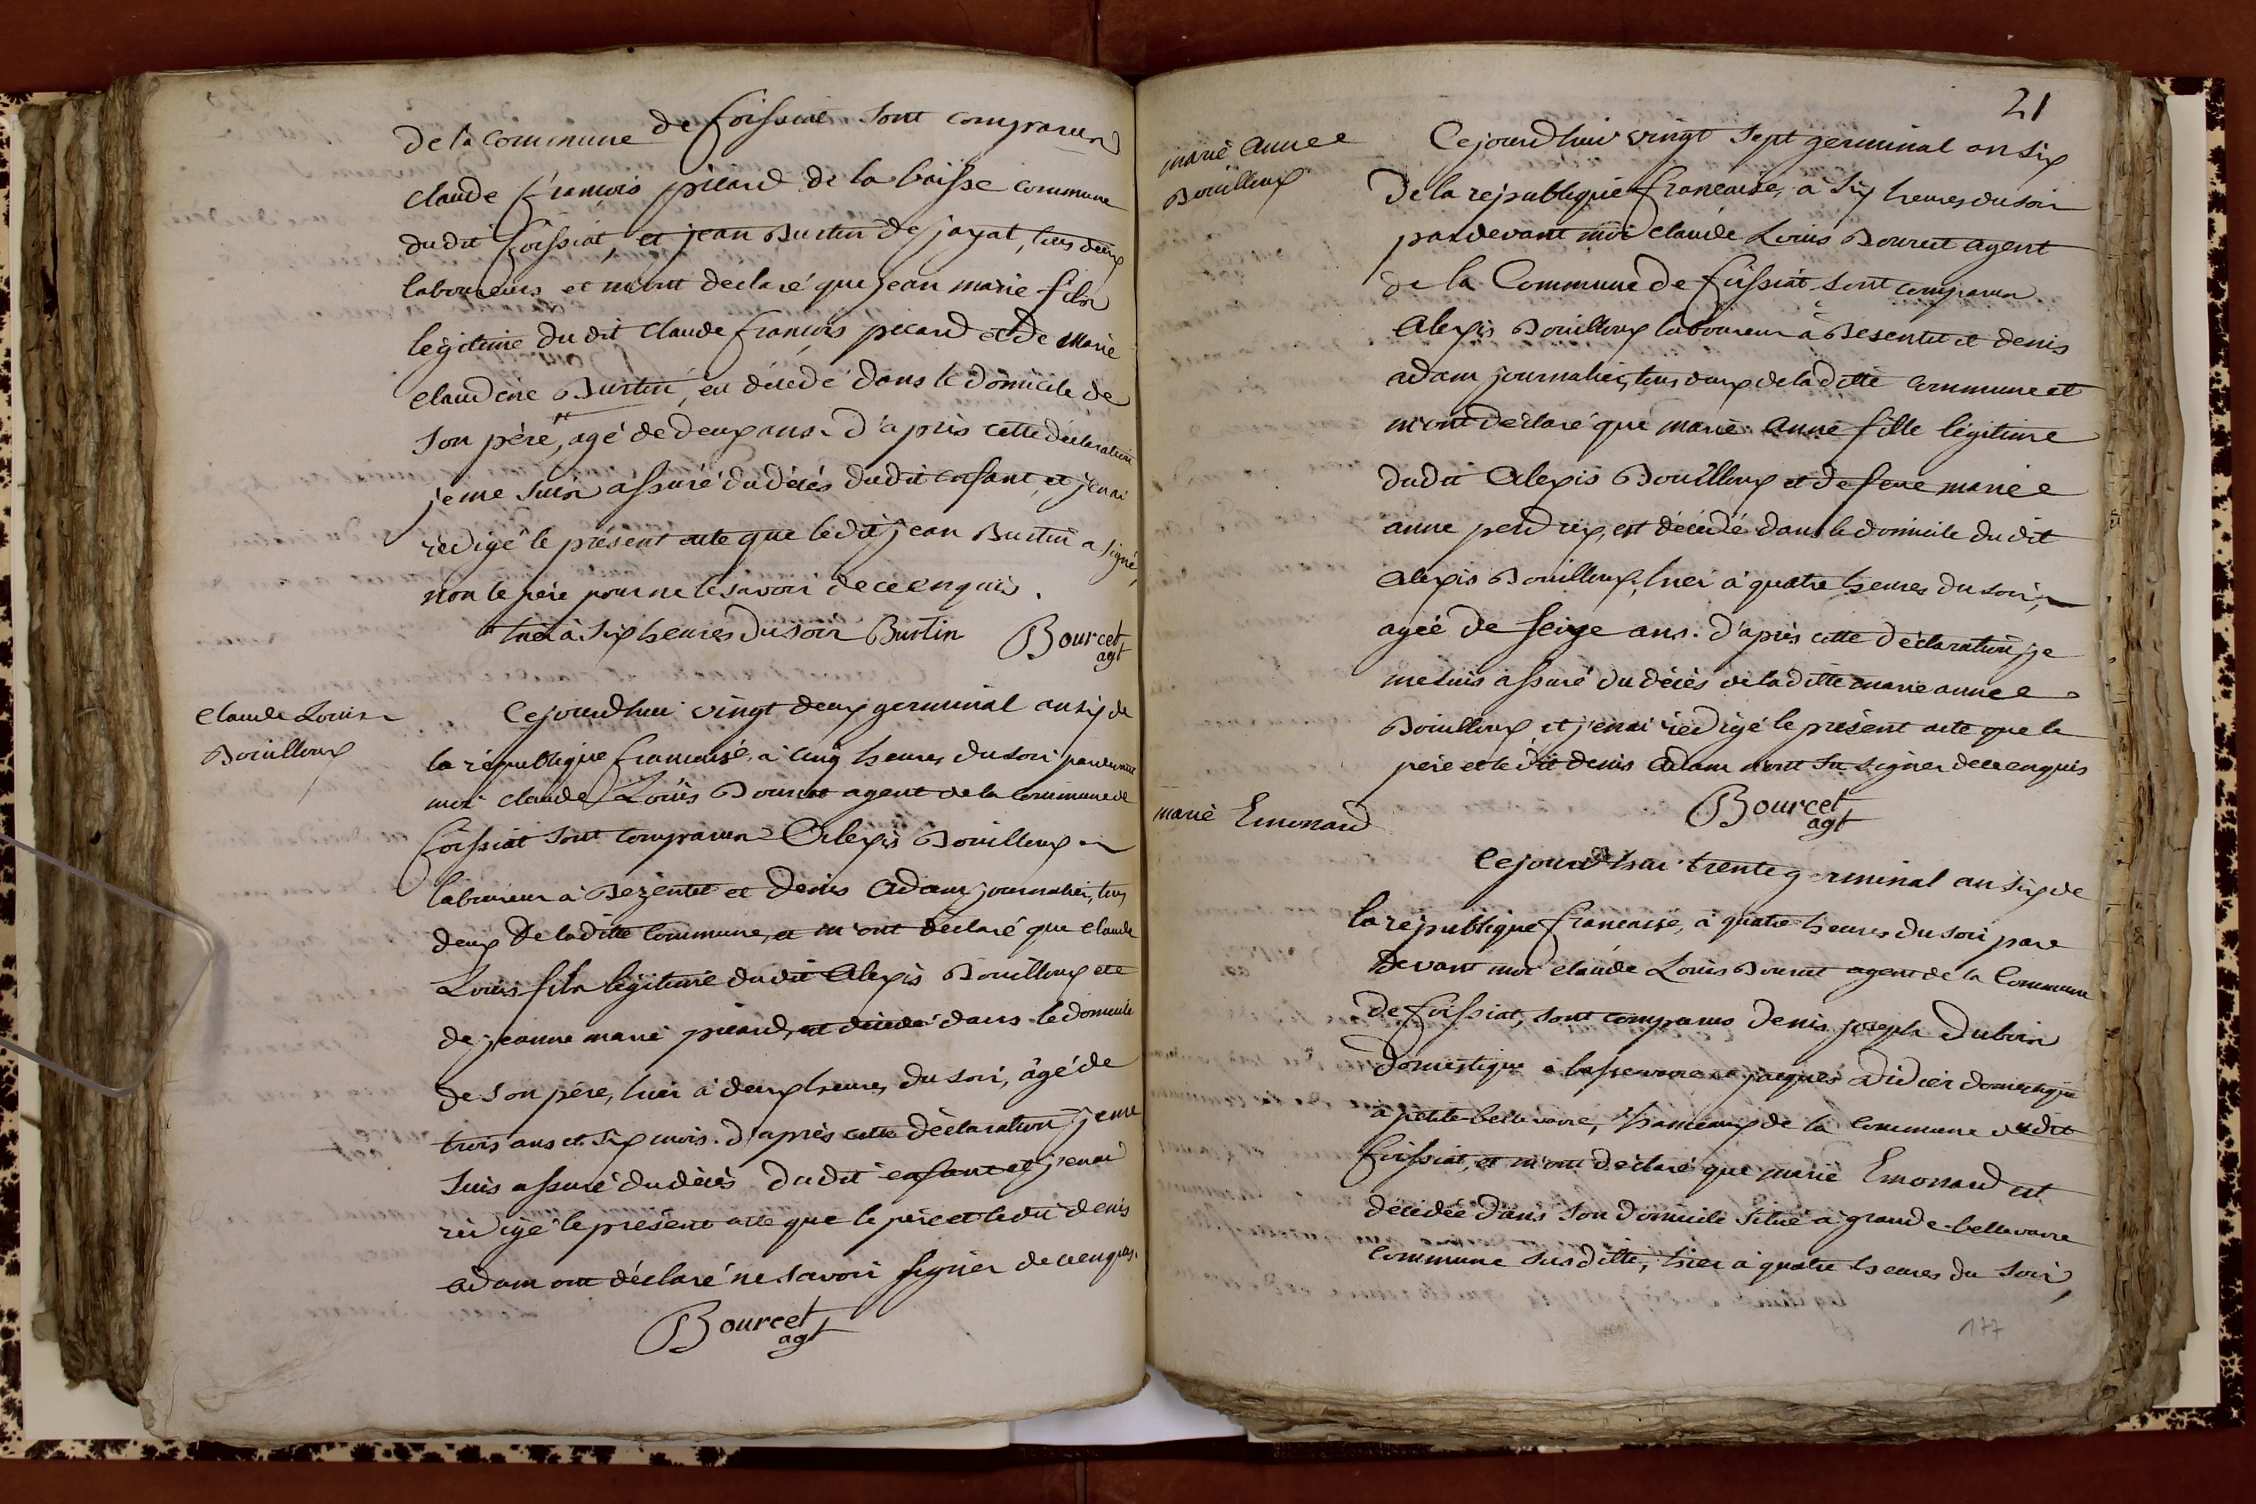 de la commune de foissiat sont comparus
claude françois picard de la baisse commune
dudit foissiat, et jean Burtin de jayat, tous deux
laboureurs et m'ont declaré que jean marie fils
légitime du dit claude françois picard et de marie
claudine Burtin, est décédé dans le domicile de
son père ", agé de deux ans. d'après cette déclaration
je me suis assuré du décès dudit enfant, et j'en ai
rédigé le présent acte que le dit jean Burtin a signé,
non le père pour ne le savoir de ce enquis.
" hier à six heures du soir Burtin Bourcet
agt
claude Louis
Bouilloux
Cejourdhui vingt deux germinal an six de
la république française, à cinq heures du soir pardevant
moi claude Louis Bourcet agent de la commune de
foissiat sont comparus Alexis Bouilloux
laboureur à Bezentet et denis Adam journalier, tous
deux de la ditte commune, et m'ont déclaré que claude
Louis fils légitime du dit Alexis Bouilloux et
de jeanne marie picard, est décédé dans le domicile
de son père, hier à deux heures du soir, âgé de
trois ans et six mois. d'après cette déclaration je me
suis assuré du décès du dit enfant et j'en ai
rédigé le présent acte que le père et le dit denis
adam ont déclaré ne savoir signer de ce enquis.
Bourcet
agt
21
marie Anne
Bouilloux
Cejourdhui vingt sept germinal an six
de la république française, à six heures du soir
pardevant moi claude Louis Bourcet agent
de la Commune de foissiat sont comparus
Alexis Bouilloux laboureur à Besentet et denis
adam journalier, tous deux de la ditte commune et
m'ont déclaré que marie anne fille légitime
dudit Alexis Bouilloux et de feue marie
anne perdrix, est décédé dans le domicile du dit
Alexis Bouilloux, hier à quatre heures du soir,
agée de seize ans. d'après cette déclaration, je
me suis assuré du décès de la ditte marie anne
Bouilloux, et j'en ai rédigé le présent acte que le
père et le dit denis Adam n'ont su signer de ce enquis
Bourcet
agt
marie Emonard
Cejourd'hui trente germinal an six de
la république française, à quatre heures du soir par
devant moi claude Louis Bourcet agent de la Commune
de foissiat, sont comparus Denis joseph Dubois
domestique à et jacques Didier domestique
à petite-bellevavre, hameaux de la commune dudit
foissiat, et m'ont déclaré que marie Emonard est
décédée dans son domicile situé à grande-bellevavre
commune susditte, hier à quatre heures du soir,
177